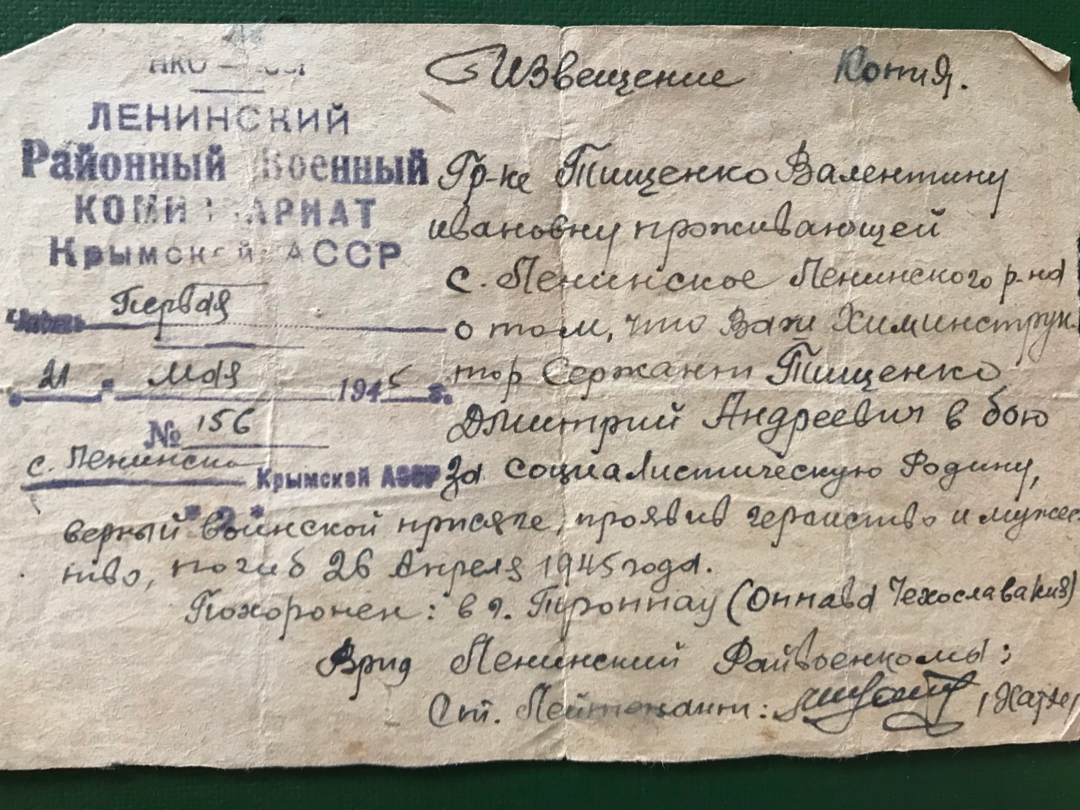 НКО –
ЛЕНИНСКИЙ
Районный Военный
КОМИССАРИАТ
Крымской АССР
Первая
21 " Мая 1945 г.
№ 156
с. Ленинско Крымской АССР
"2"
Извещение Копия.
Гр-ке Тищенко Валентину
ивановну проживающей
с. Ленинское Ленинского р-на
о том, что Ваш Химинструк
тор Сержант Тищенко
Дмитрий Андреевич в бою
за социалистическую Родину,
верный воинской присяге, проявив героиство и мужес
тво, погиб 26 Апреля 1945 года.
Похоронен: в г. Троппау (Оппава Чехославакия)
Врид Ленинский Райвоенкомы:
Ст. Лейтенант: